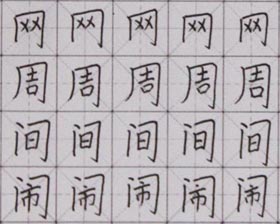 网网网网网
周周周周周
间间间间间
闹闹闹闹闹